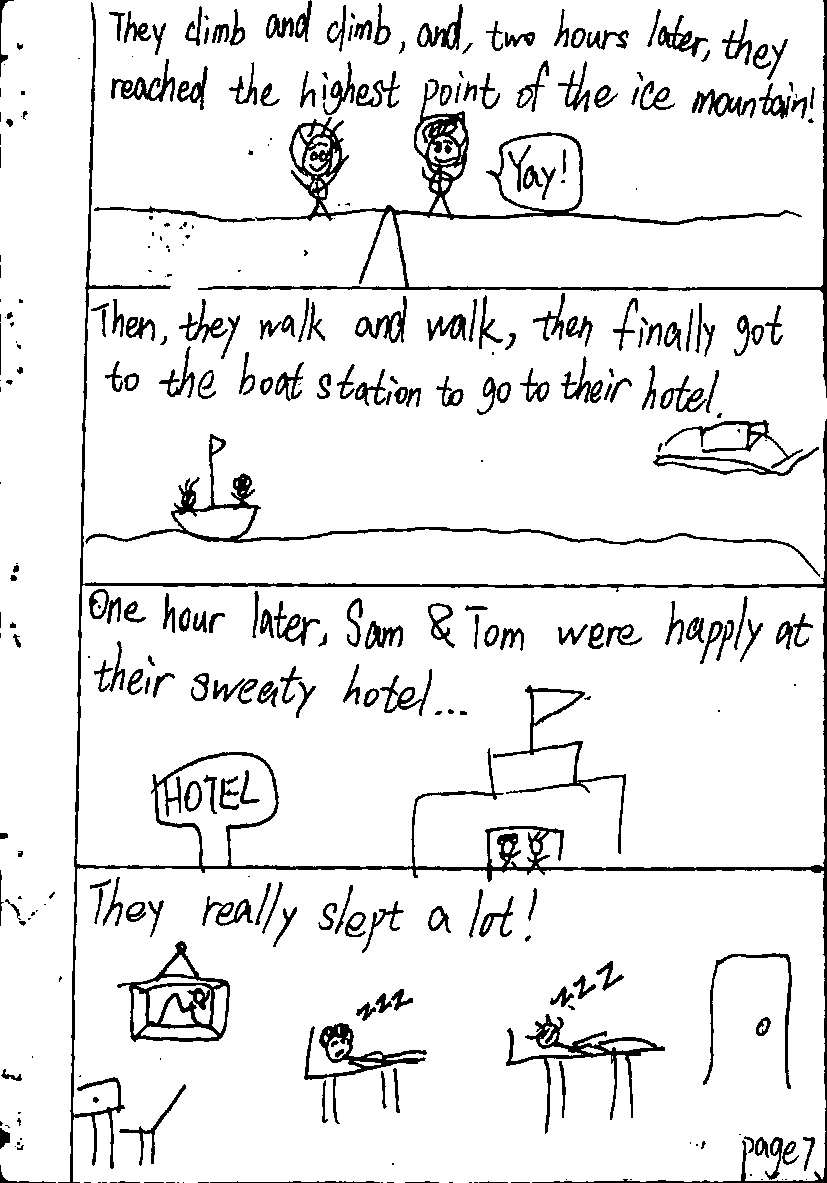 They climb and climb, and, two hours later, they
reached the highest point of the ice mountain!
Yay!
Then, they walk and walk, then finally got
to the boat station to go to their hotel.
One hour later, Sam & Tom were happly at
their sweaty hotel...
HOTEL
They really slept a lot!
zzz
zzz
page 7